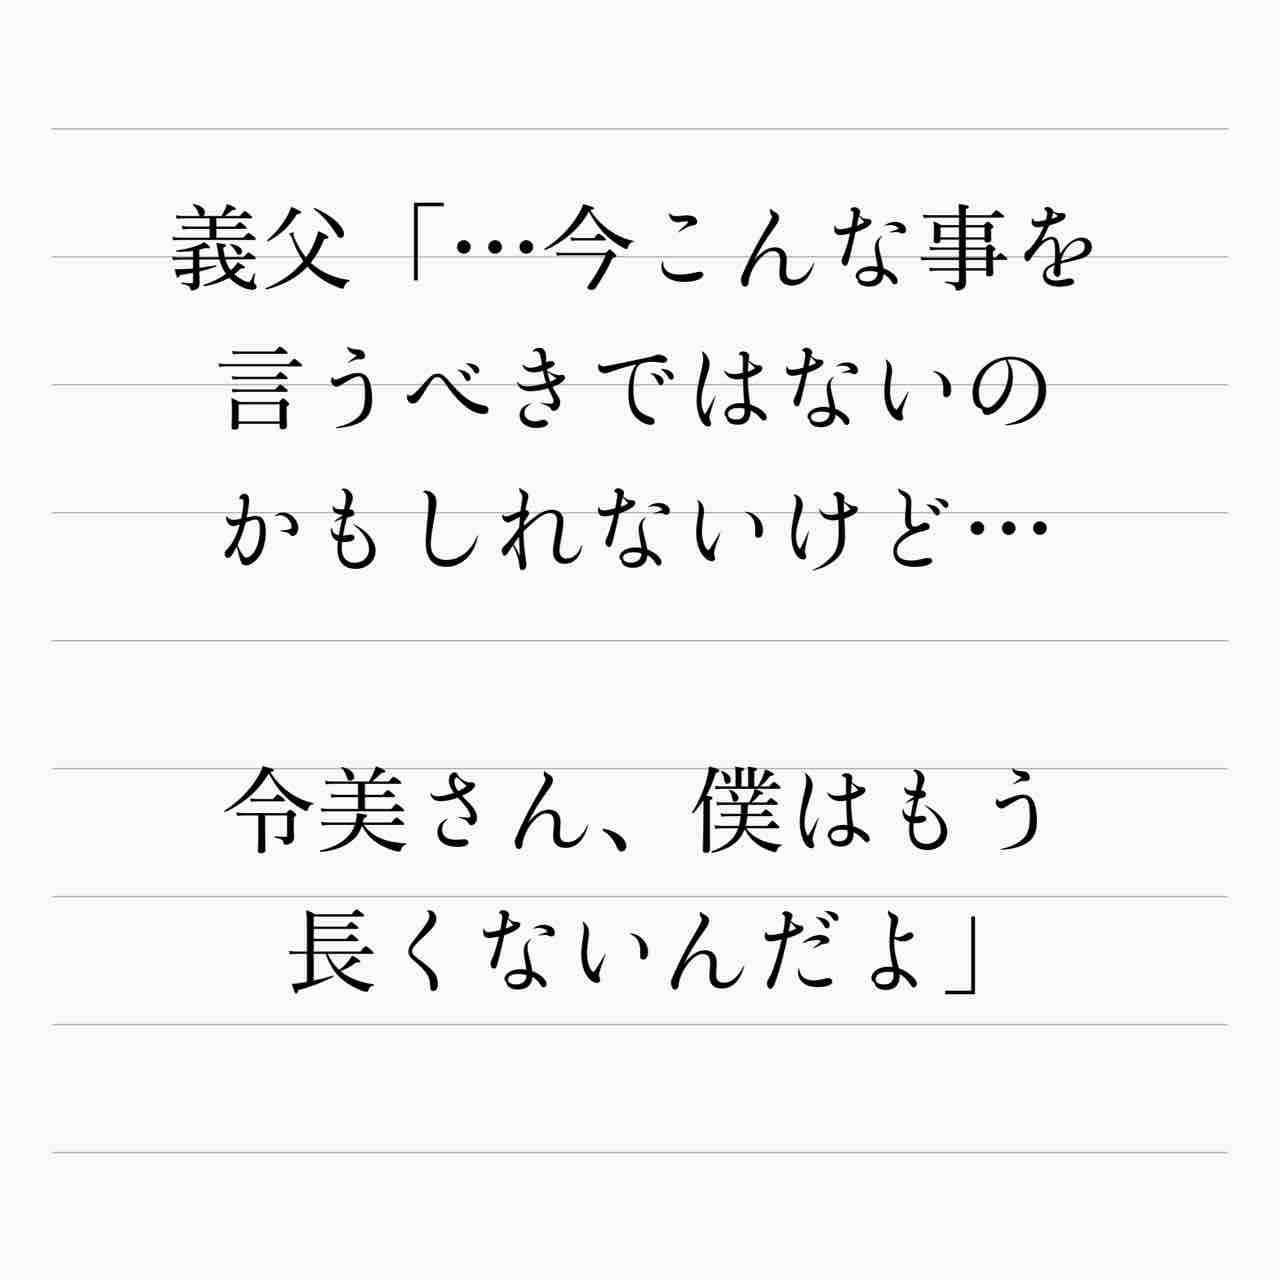 義父「…今こんな事を
言うべきではないの
かもしれないけど…
令美さん、僕はもう
長くないんだよ」